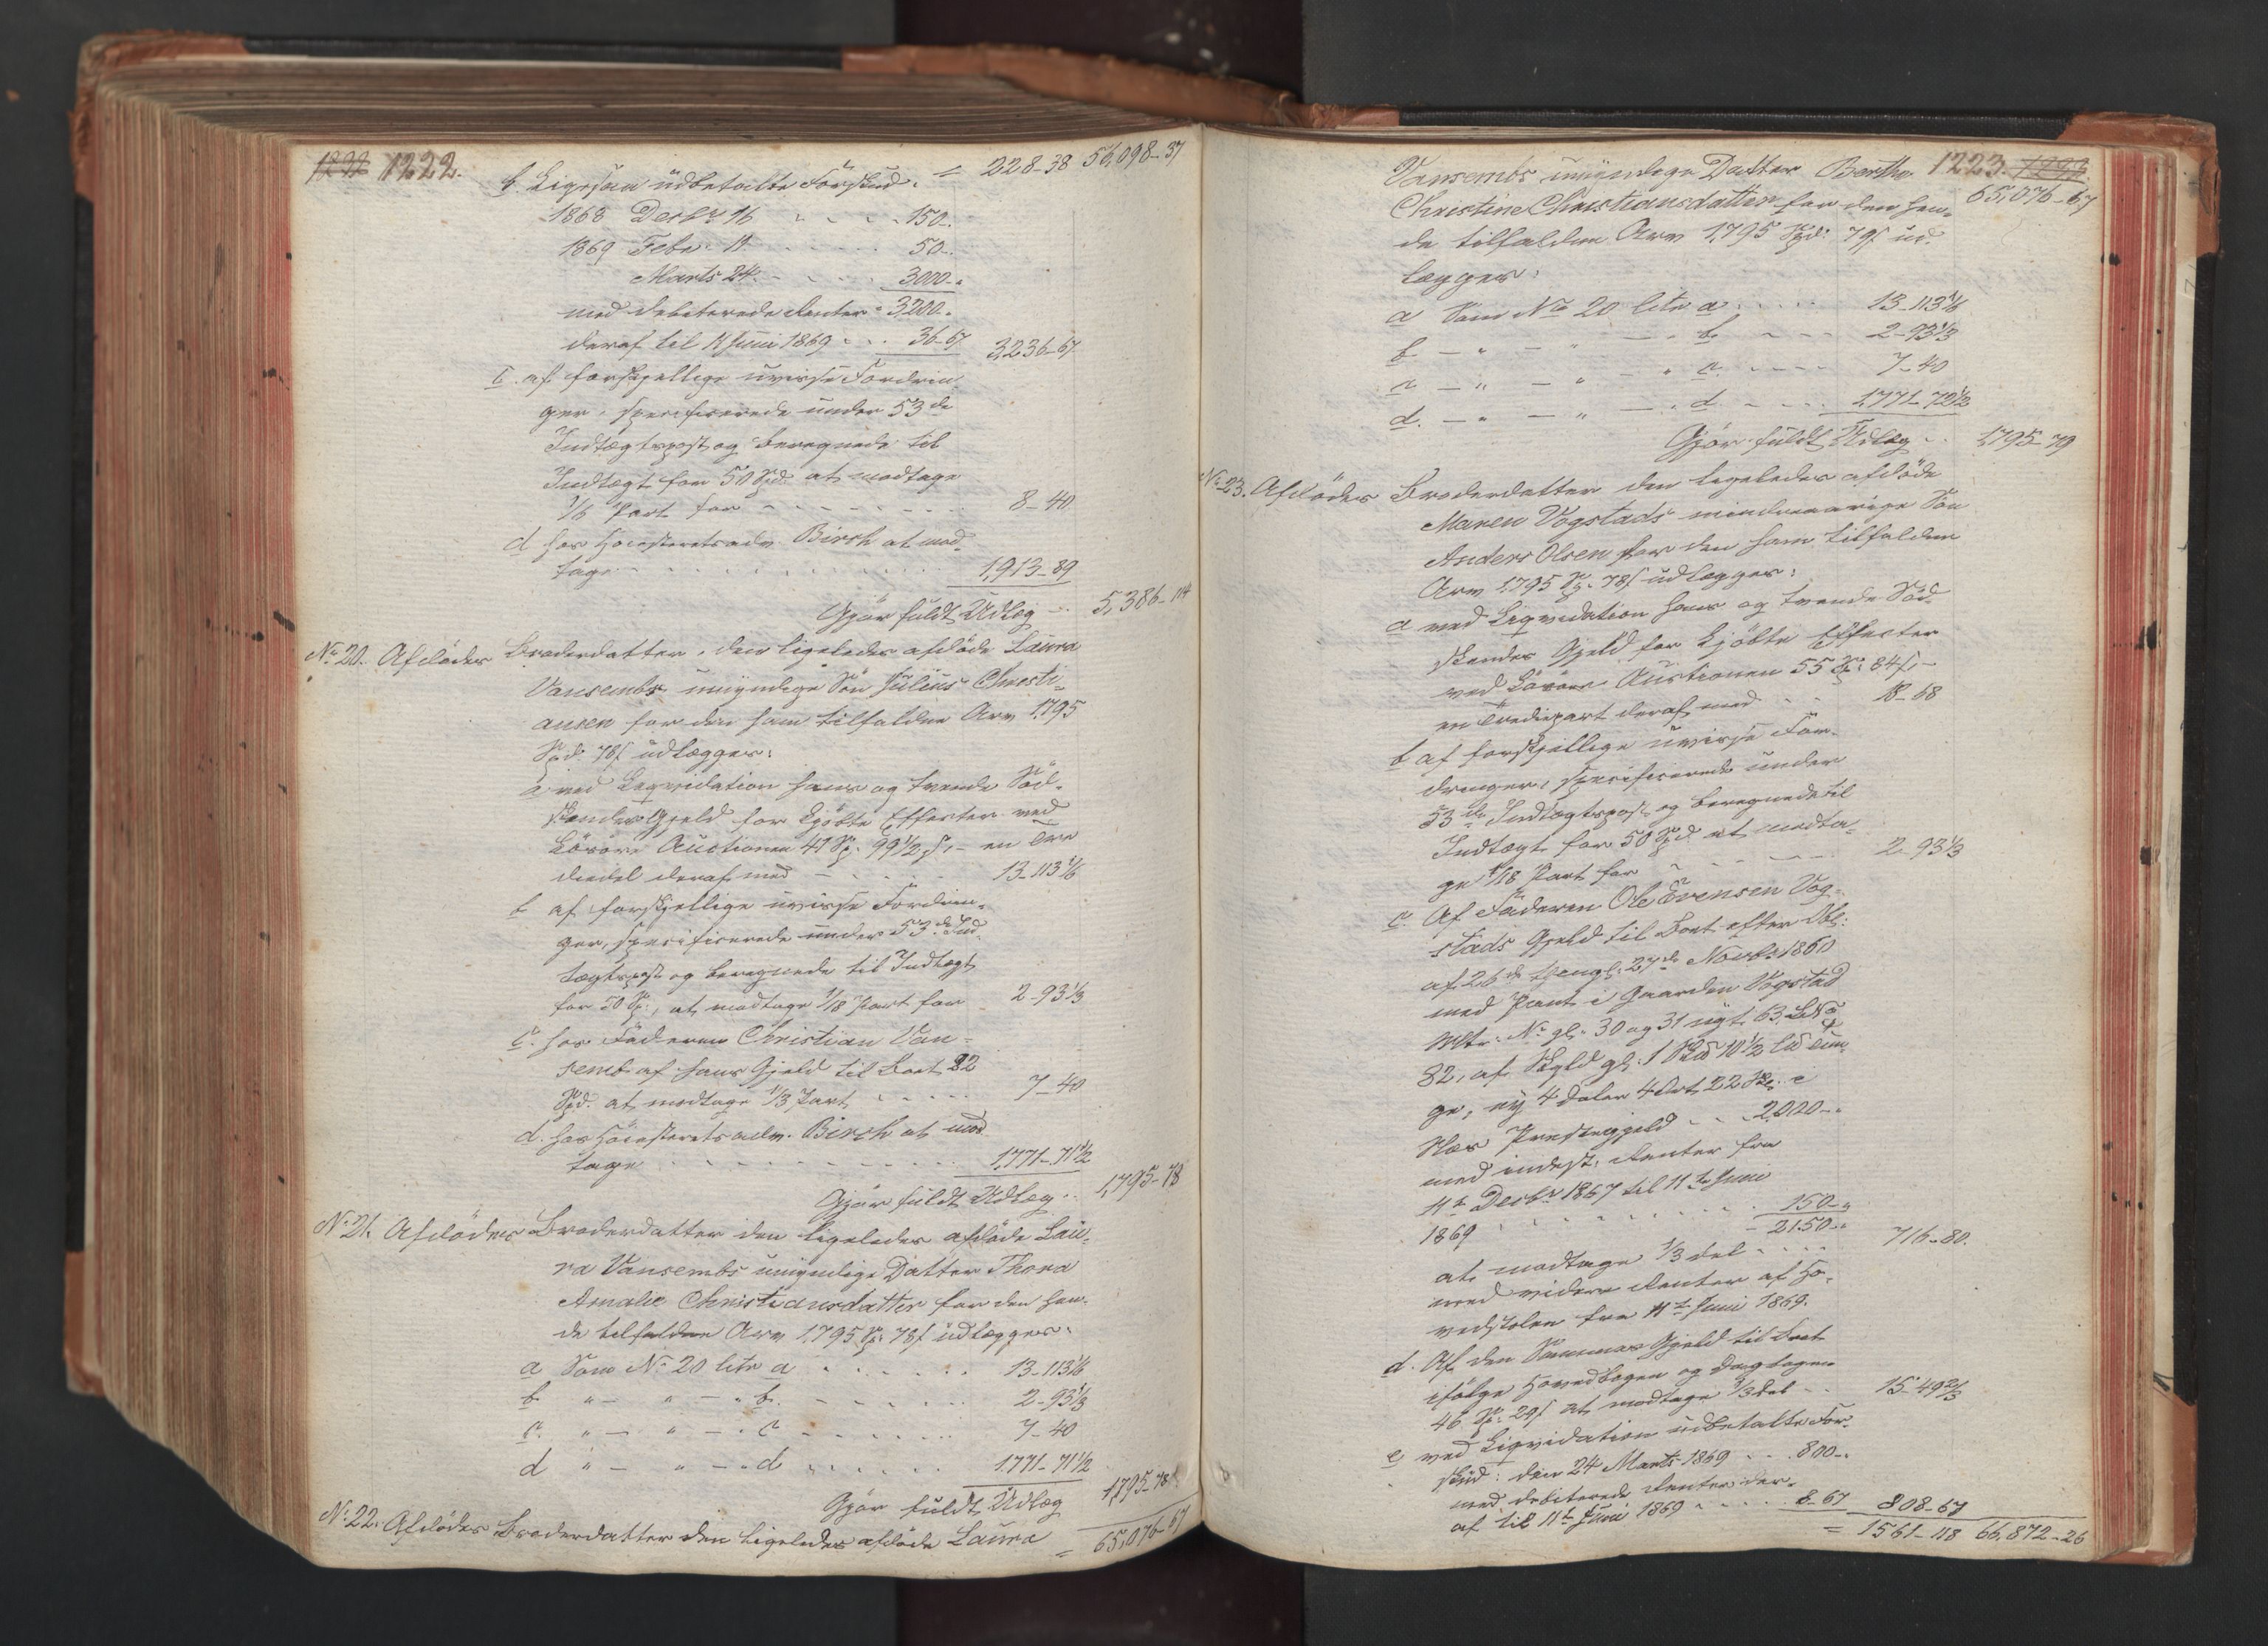 1222 1222.
= 228-38 56,098-37
b Ligesaa udbetalte Forskud:
1868 Decbr 16 . . . . 150-.
1869 Febr. 11. . . . . 50-.
Marts 24. . . . . 3000-.
med debiterede Renter = 3200-.
deraf til 11 Juni 1869 . . . 36-67 3,236-67
c. af forskjellige uvisse Fordrin-
ger, specificerede under 53de
Indtægtspost og beregnede til
Indtægt for 50 Spd. at modtage
1/6 Part for . . . . . 8-40
d hos Höiesteretsadv. Birch at mod-
tage . . . . . 1,913-89
Gjör fuldt Udlæg . . 5,386-114
No 20. Afdödes Broderdatter, den ligeledes afdöde Laura
Vansembs umyndige Sön Julius Christi-
ansen for den ham tilfaldne Arv 1,795
Spd. 78 s udlægges:
a ved Liqvidation hans og tvende Söd-
skendes Gjeld for kjöbte Effecter ved
Lösöre Auctionen 41 Sp. 99 1/2 s, - en Tre-
diedel deraf med - . . . . 13-113 1/6
b af forskjellige uvisse Fordrin-
ger, specificerede under 53de Ind-
tægtspost og beregnede til Indtægt
for 50 Sp., at modtage 1/18 Part for 2-93 1/3
c. hos Faderen Christian Van-
semb af hans Gjeld til Boet 22
Spd. at modtage 1/3 Part . . . . . 7-40
d. hos Höiesteretsadv. Birch at mod-
tage . . . . . 1,771-71 1/2
Gjör fuldt Udlæg . . 1,795-78
No 21. Afdödes Broderdatter den ligeledes afdöde Lau-
ra Vansembs umyndige Datter Thora
Amalie Christiansdatter for den hen-
de tilfaldne Arv 1,795 Sp. 78 s udlægges:
a Som No 20 litr a . . . . . 13-113 1/6
b. " - " - " b. . . . . . 2-93 1/3
c. " - " - " c . . . . . 7-40
d " - " - " d . . . . . 1771-71 1/2
Gjör fuldt Udlæg 1,795-78
No 22. Afdödes Broderdatter den ligeledes afdöde Laura = 65,076-67
1223. 1223.
Vansembs umyndige Datter Berthe
Christine Christiansdatter for den hen- 65,076-67
de tilfaldne Arv 1,795 Spd: 79 s ud-
lægges:
a Som No 20 litr a . . . . 13-113 1/6
b. - " - " - b. - - - 2-93 1/3
c - " - " - " c. - - - 7-40
d. - " - " - " d - - . . 1,771-72 1/2
Gjör fuldt Udlæg . . 1,795-79
No 23. Afdödes Broderdatter den ligeledes afdöde
Maren Vogstads mindreaarige Sön
Anders Olsen for den ham tilfaldne
Arv 1,795 Sp. 78 s udlægges:
a ved Liqvidation hans og tvende Söd-
skendes Gjeld for kjöbte Effecter
ved Lösöre Auctionen 55 Sp: 84 s, -
en Trediepart deraf med . . . 18-68
b af forskjellige uvisse For-
dringer, specificerede under
53de Indtægtspost og beregnede til
Indtægt for 50 Spd at modta-
ge 1/18 Part for . . . . . 2-93 1/3
c. Af Faderen Ole Evensen Vog-
stads Gjeld til Boet efter Obl:
af 26de thingl: 27de Novbr 1860
med Pant i Gaarden Vogstad
Mtr: No gl. 30 og 31 nyt 63, LNo
82, af Skyld gl: 1 Skd 10 1/2 Ld Tun-
ge, ny 4 Daler 4 Ort 22 Sk. i
Næs Præstegjeld . . . 2,000-.
med indest: Renter fra
11te Decbr 1867 til 11te Juni
1869 . . . . . 150-"
= 2150-.
at modtage 1/3 del . . . . 716-80.
med videre Renter af Ho-
vedstolen fra 11te Juni 1869.
d. Af den Sammes Gjeld til Boet
ifölge Hovedbogen og Dagbogen
46 Sp: 29 s at modtage 1/3 del . . 15-49 2/3
e ved Liqvidation udbetalte For-
skud: den 24 Marts 1869 . . . 800-.
med debiterede Renter der-
af til 11te Juni 1869 . . . . 8-67 808-67
= 1561-118 66,872-26